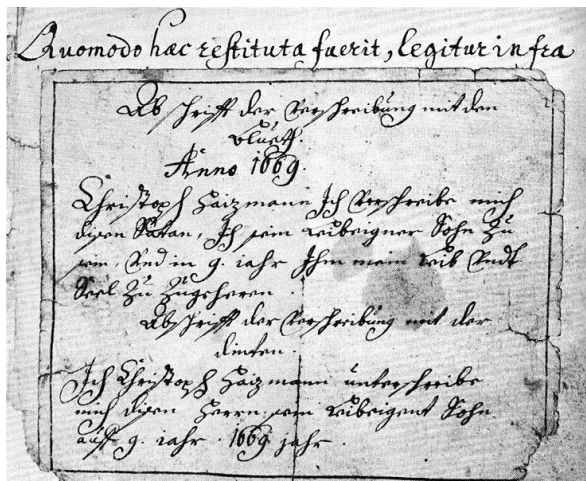 Quomodo hæc restituta fuerit, legitur infra
Abschrifft der Verschreibung mit den
bluett.
Anno 1669.
Christoph Haizmann Ich Verschreibe mich
disen Satan, Ich sein leibeigner Sohn zu
sein, Und in 9. iahr Ihm mein leib Undt
Seel zu zugeheren.
Abschrifft der Verschreibung mit der
dinten.
Ich Christoph Haizmann unterschreibe
mich disen Herrn, sein leibeigent Sohn
auff 9. iahr. 1669 jahr.